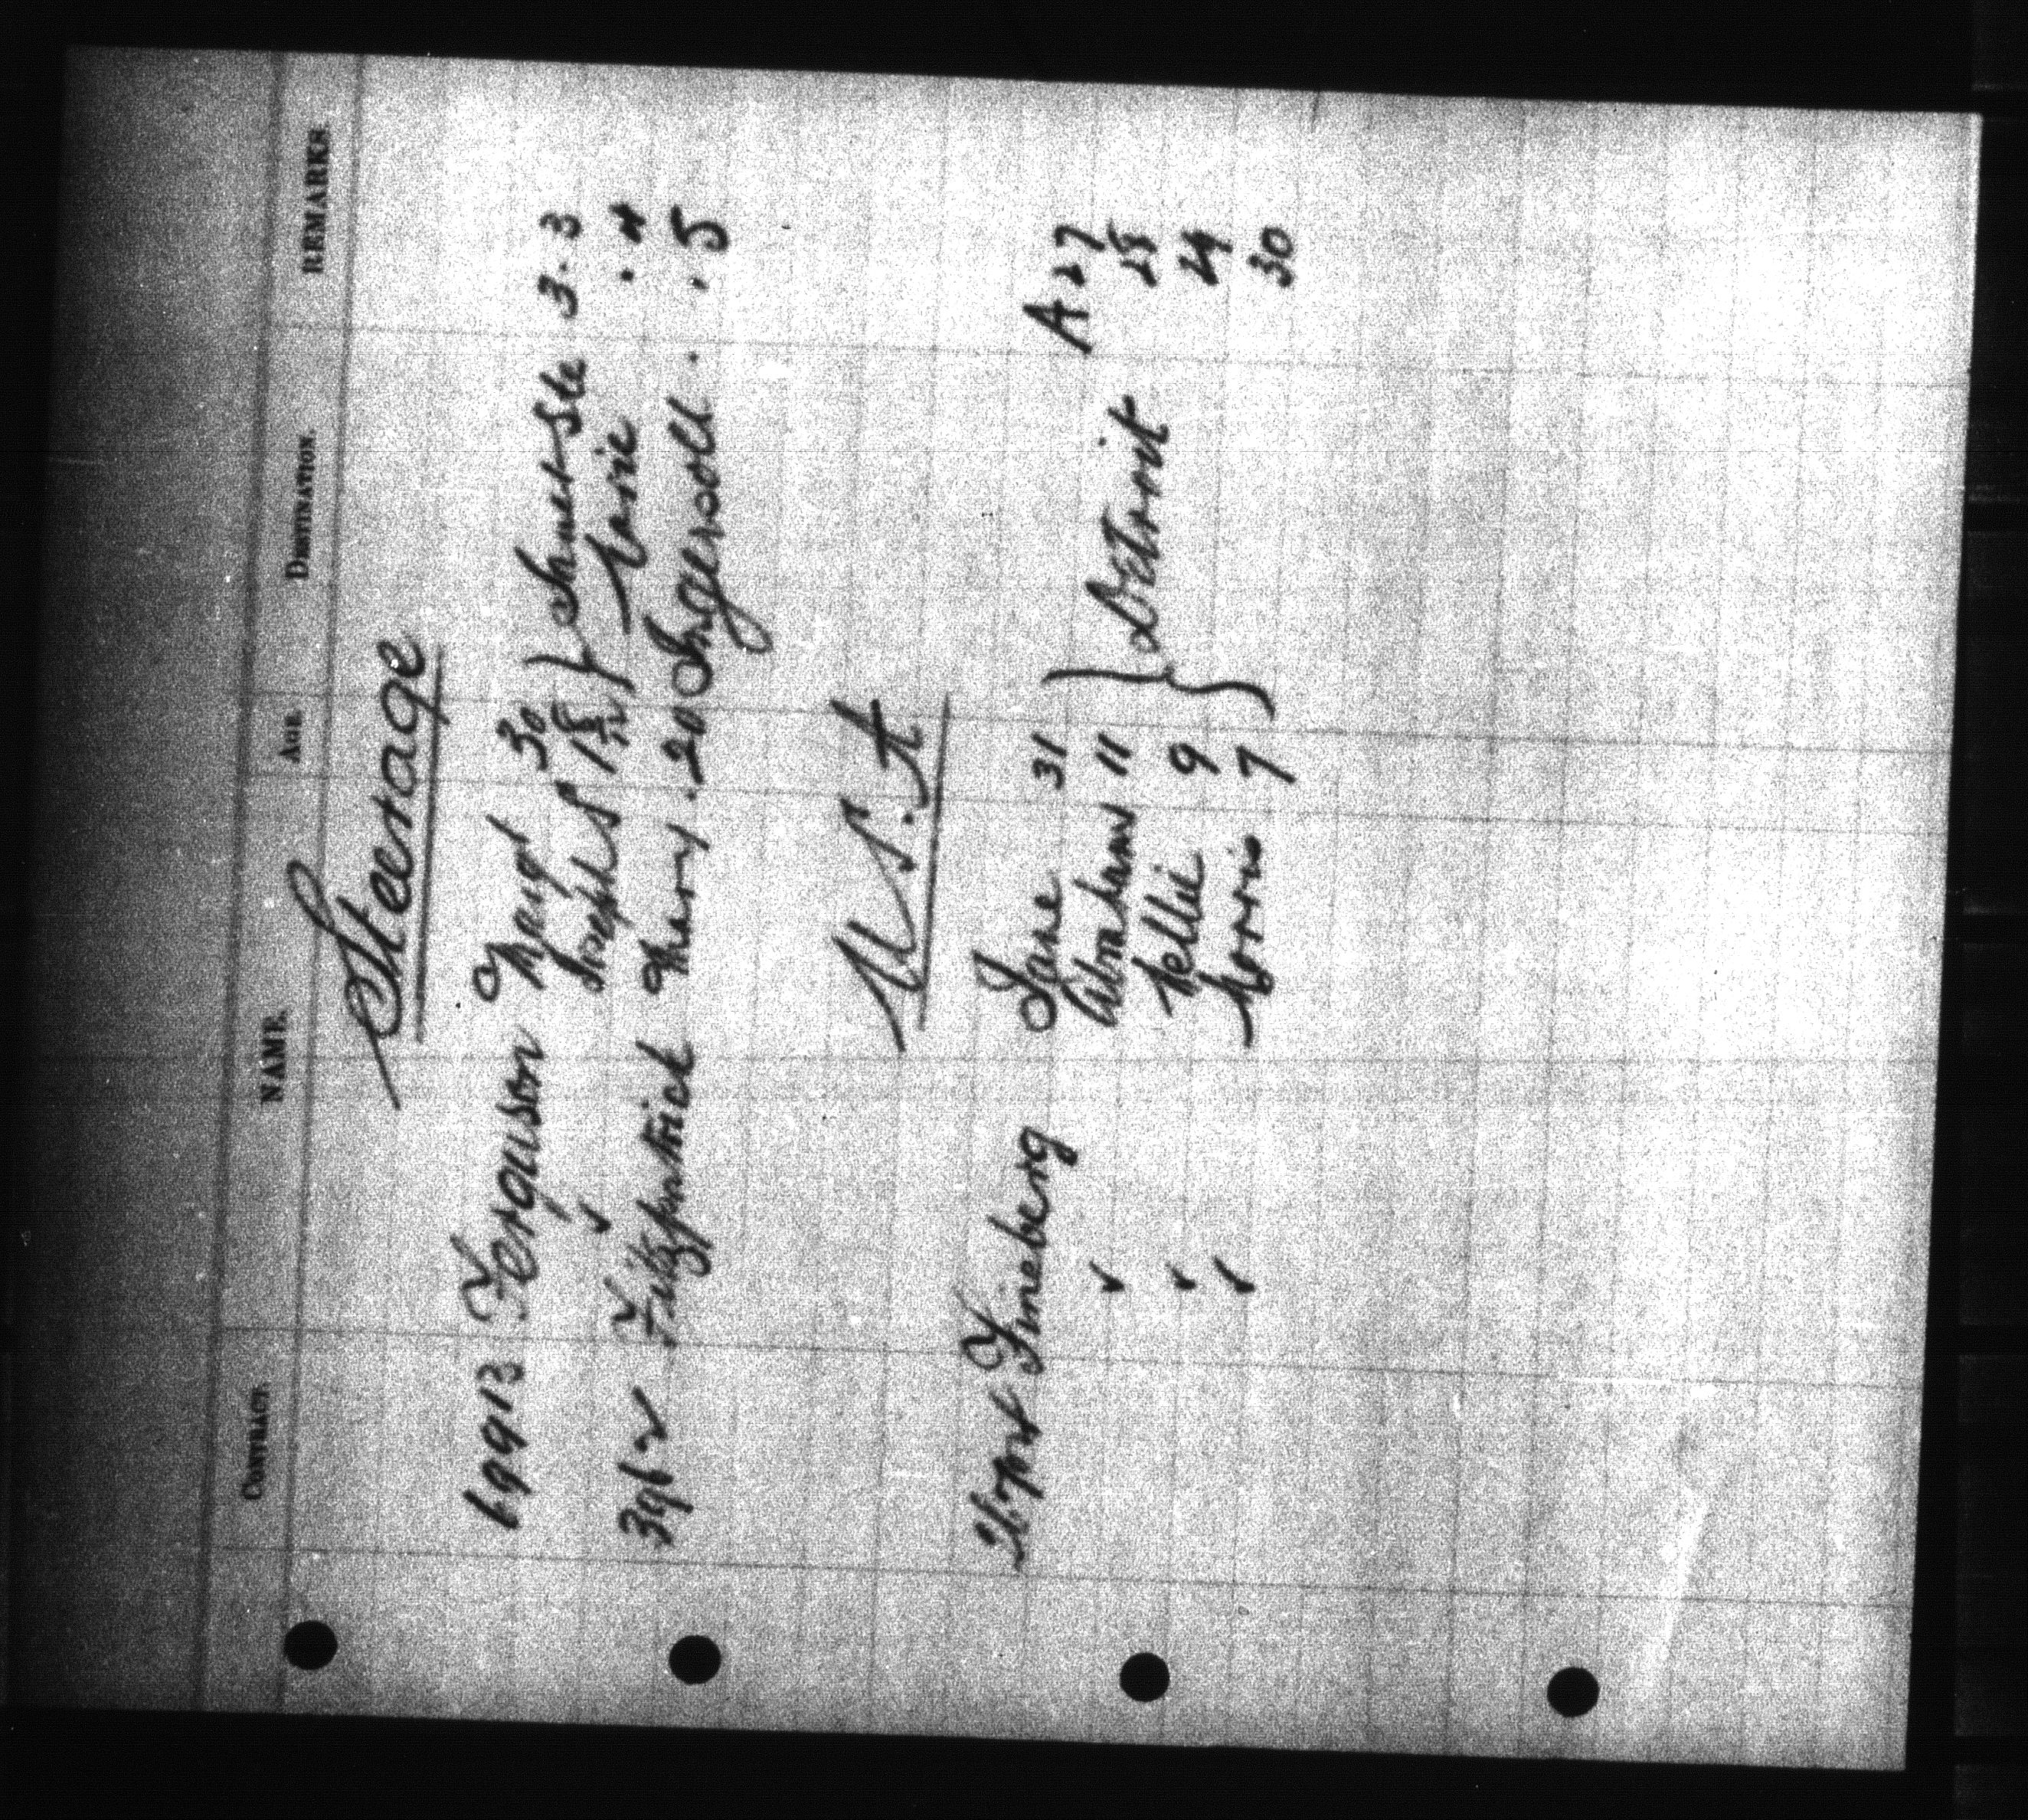 CONTRACT. NAME. AGE. DESTINATION. REMARKS.
Steerage
69913 Ferguson Margt 30 } Sault Ste 3.3
✓ Joseph S 1 8/12 } Marie . 4
3962 Fitzpatrick Mary . 20 Ingersoll . . 5
U.S.A
Fineberg Jane 31 } A 27
✓ Abraham 11 } Detroit 28
✓ Nellie 9 } 29
✓ Morris 7 } 30